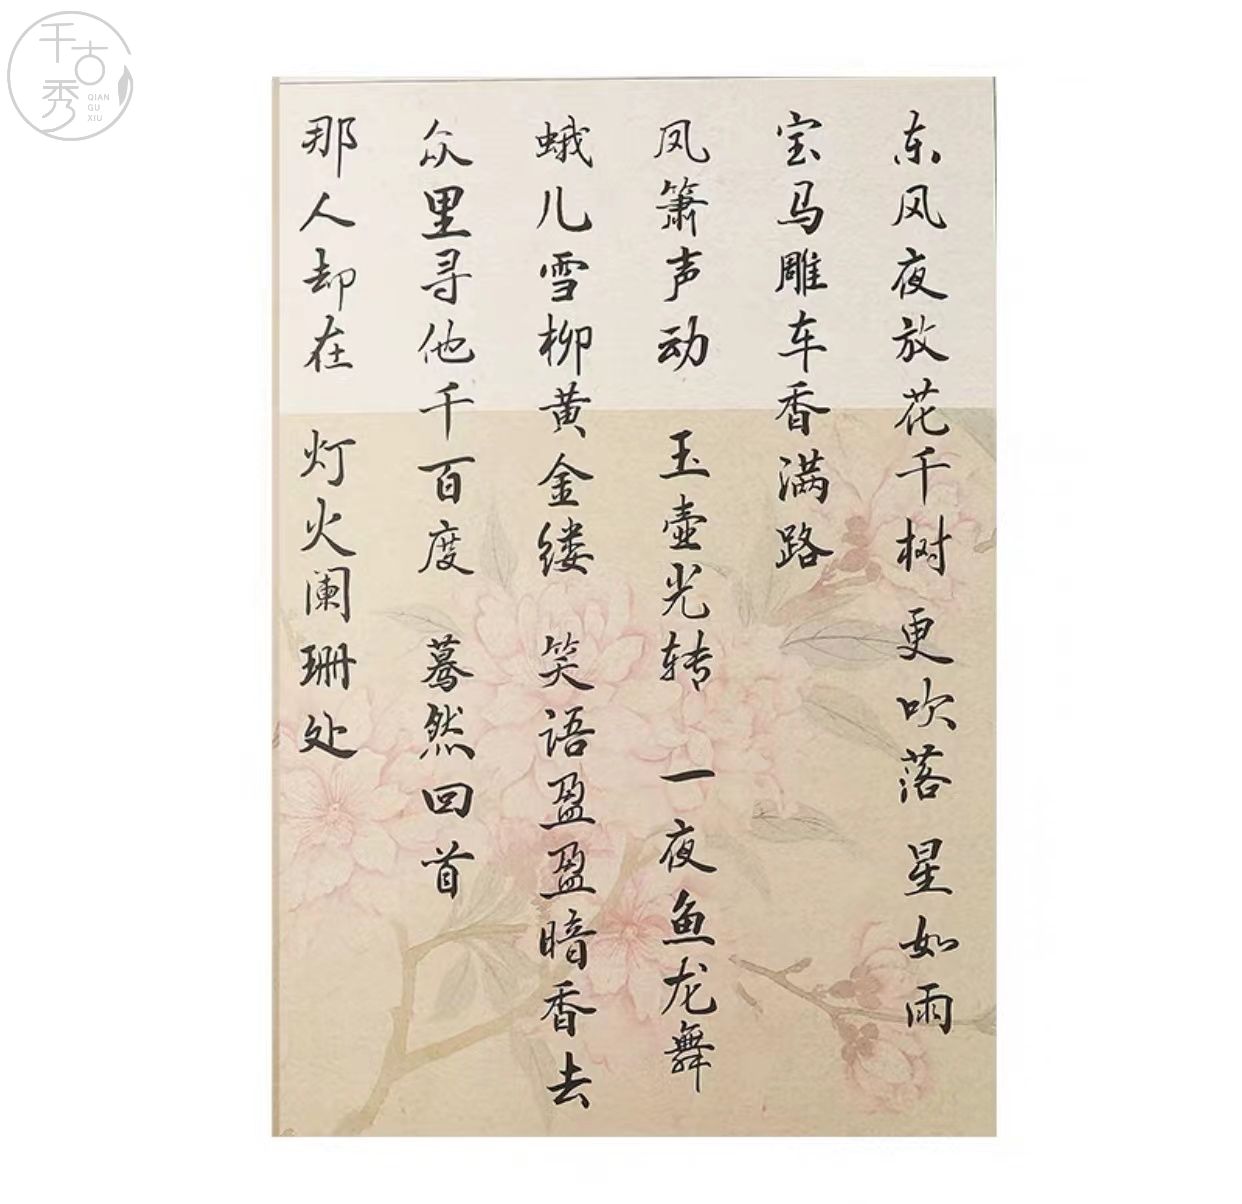 千古秀
QIAN
GU
XIU
东风夜放花千树 更吹落 星如雨
宝马雕车香满路
凤箫声动 玉壶光转 一夜鱼龙舞
蛾儿雪柳黄金缕 笑语盈盈暗香去
众里寻他千百度 蓦然回首
那人却在 灯火阑珊处